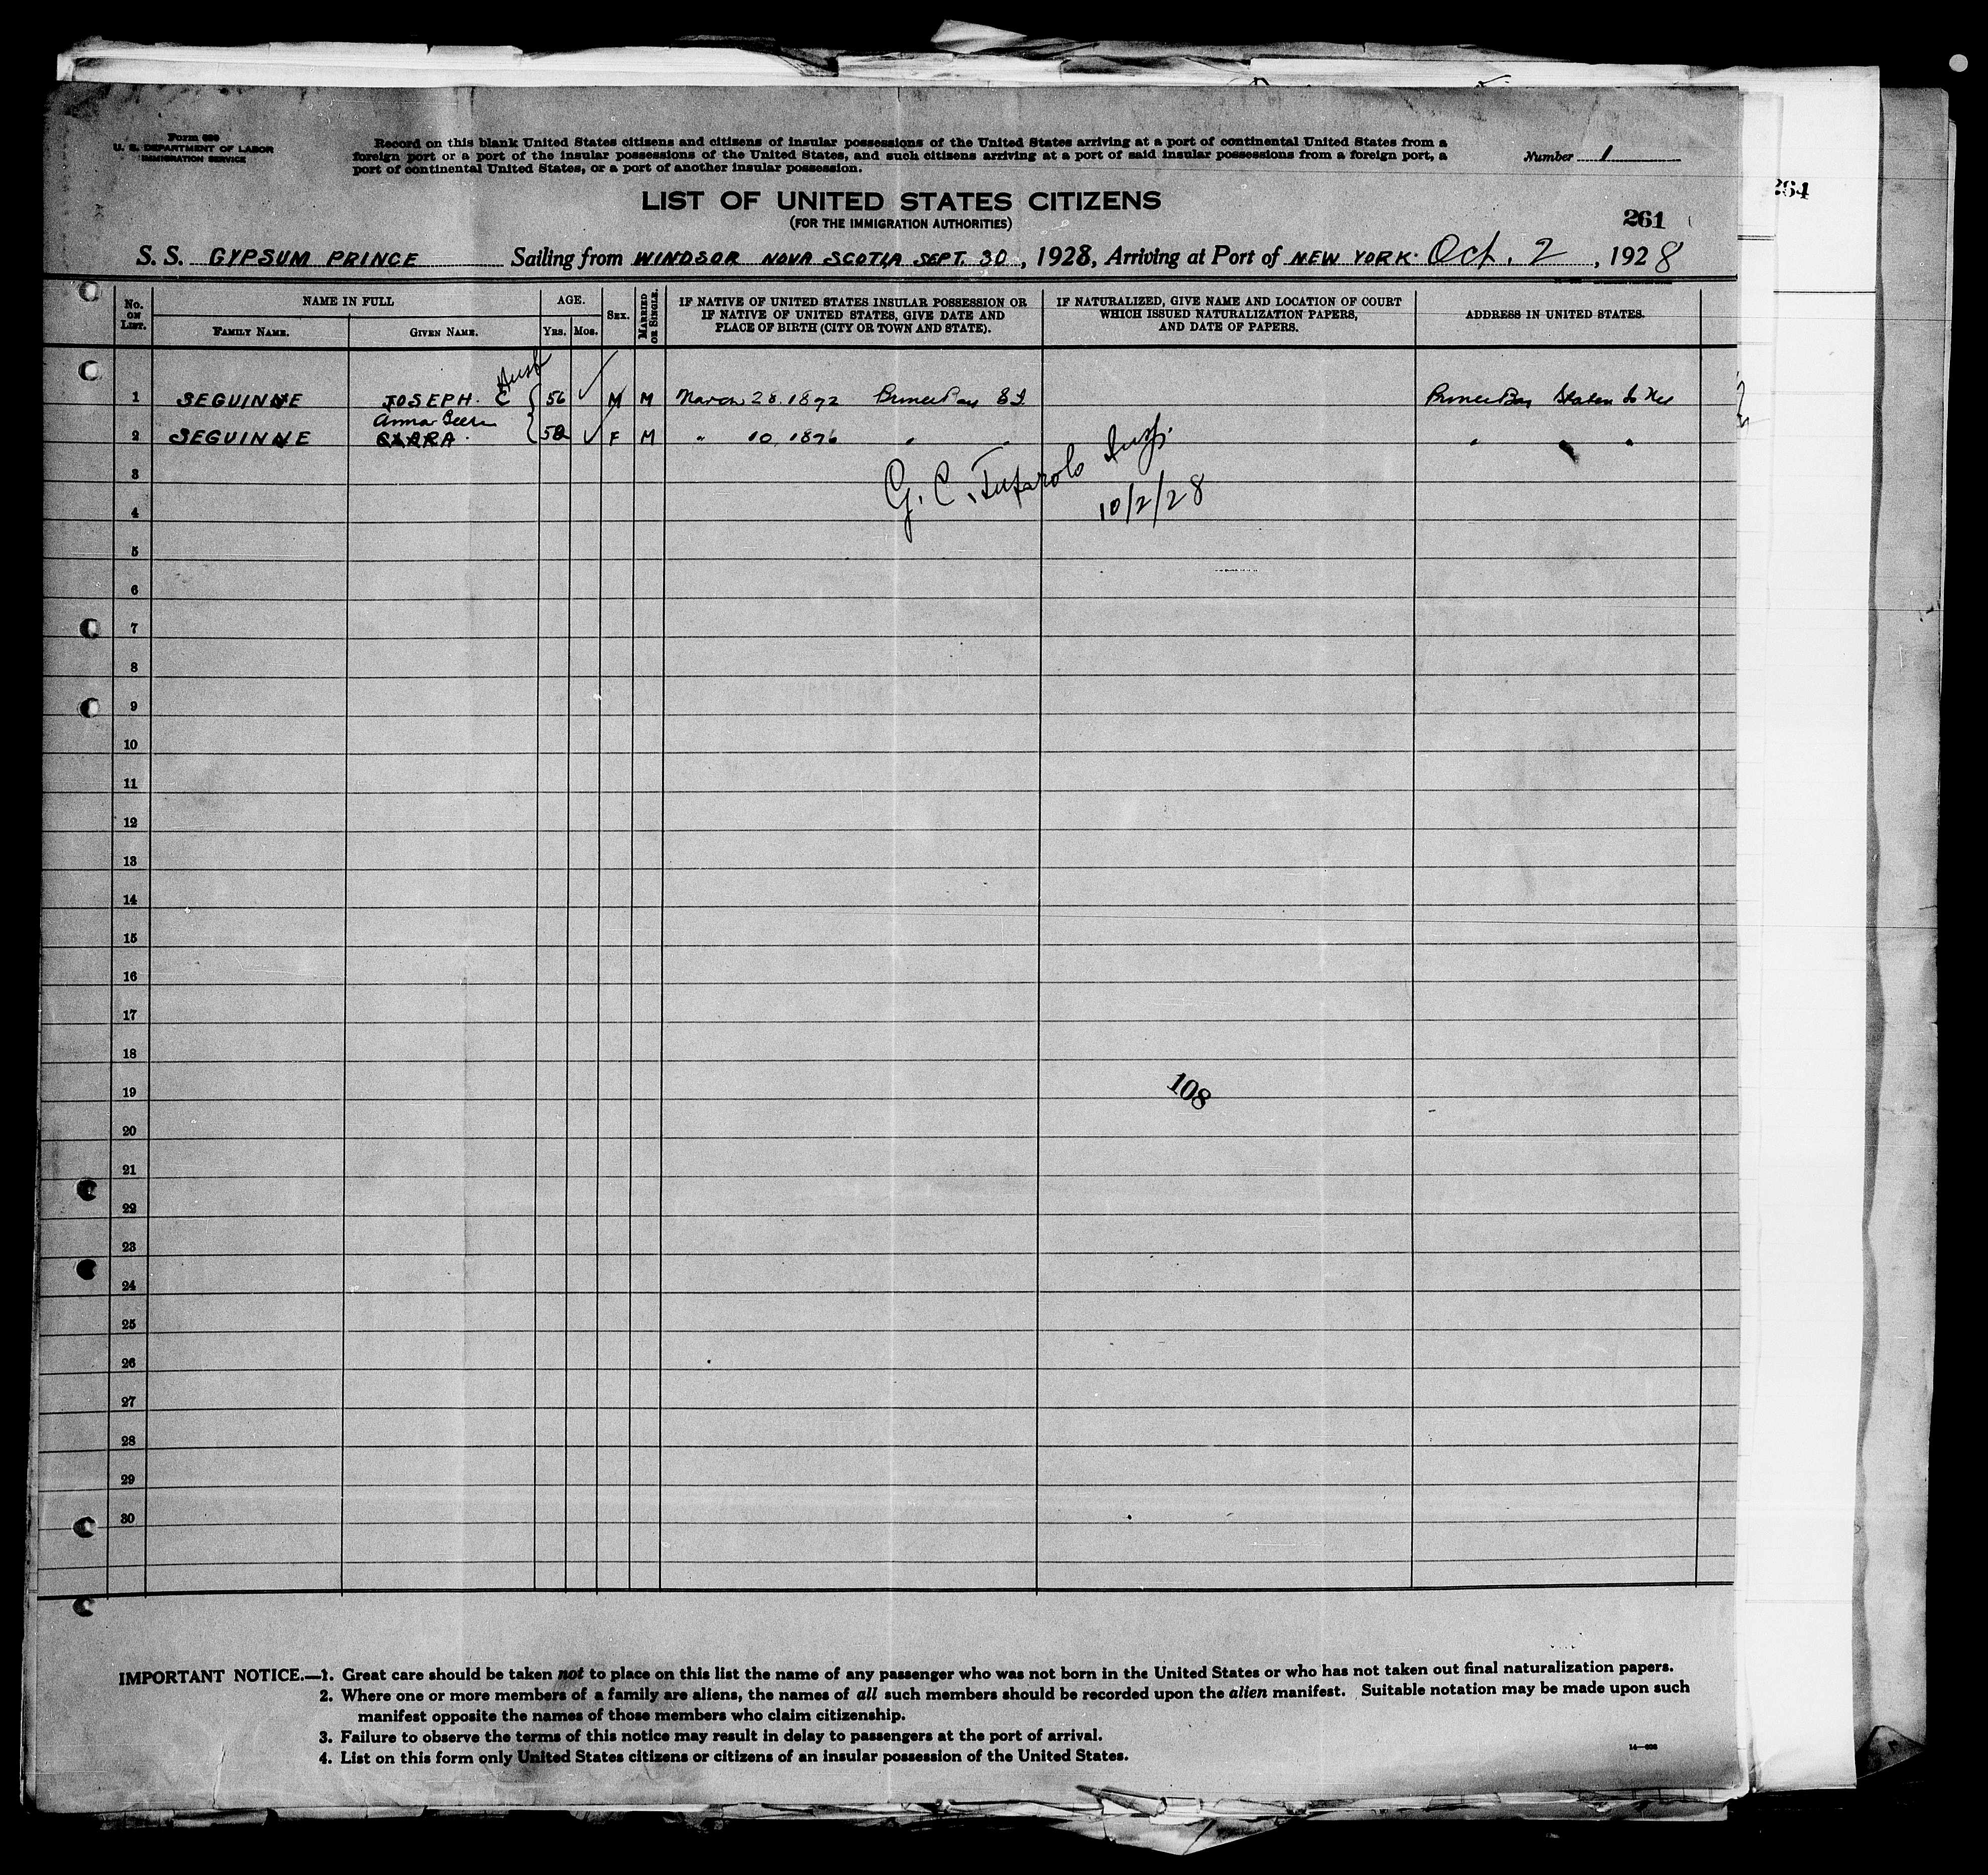 Form 630
U. S. DEPARTMENT OF LABOR
IMMIGRATION SERVICE
Record on this blank United States citizens and citizens of insular possessions of the United States arriving at a port of continental United States from a
foreign port or a port of the insular possessions of the United States, and such citizens arriving at a port of said insular possessions from a foreign port, a
port of continental United States, or a port of another insular possession.
Number 1
LIST OF UNITED STATES CITIZENS
(FOR THE IMMIGRATION AUTHORITIES)
261
S. S. GYPSUM PRINCE Sailing from WINDSOR NOVA SCOTIA SEPT. 30, 1928, Arriving at Port of NEW YORK. Oct. 2, 1928
No. ON LIST.
NAME IN FULL
FAMILY NAME.
GIVEN NAME.
AGE.
YRS.
MOS.
SEX.
MARRIED OR SINGLE.
IF NATIVE OF UNITED STATES INSULAR POSSESSION OR
IF NATIVE OF UNITED STATES, GIVE DATE AND
PLACE OF BIRTH (CITY OR TOWN AND STATE).
IF NATURALIZED, GIVE NAME AND LOCATION OF COURT
WHICH ISSUED NATURALIZATION PAPERS,
AND DATE OF PAPERS.
ADDRESS IN UNITED STATES.
1 SEGUINNE JOSEPH. C 56 M M March 28. 1872 Princes Bay S I Princes Bay Staten Is
Anna
2 SEGUINNE CLARA. 52 F M " 10, 1876 " " " "
G. C. Insp.
10/2/28
3
4
5
6
7
8
9
10
11
12
13
14
15
16
17
18
19
108
20
21
22
23
24
25
26
27
28
29
30
IMPORTANT NOTICE.—1. Great care should be taken not to place on this list the name of any passenger who was not born in the United States or who has not taken out final naturalization papers.
2. Where one or more members of a family are aliens, the names of all such members should be recorded upon the alien manifest. Suitable notation may be made upon such
manifest opposite the names of those members who claim citizenship.
3. Failure to observe the terms of this notice may result in delay to passengers at the port of arrival.
4. List on this form only United States citizens or citizens of an insular possession of the United States.
264